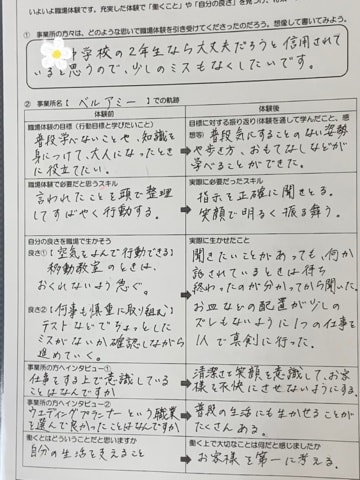 いよいよ職場体験です。充実した体験で「働くこと」や「自分の良さ」を見つけ、
① 事業所の方々は、どのような思いで職場体験を引き受けてくださったのだろう。想像して書いてみよう。
中学校の2年生なら大丈夫だろうと信用されて
いると思うので、少しのミスもなくしたいです。
② 事業所名【 ベルアミー 】での軌跡
職場体験前
職場体験の目標（行動目標と学びたいこと）
普段学べないことや、知識を
身につけて、大人になったとき
に役立てたい。
体験後
目標に対する振り返り（体験を通して学んだこと、感想等）
普段気にすることのない姿勢
や歩き方、おもてなしなどが
学べることができた。
職場体験で必要だと思うスキル
言われたことを頭で整理
してすばやく行動する。
実際に必要だったスキル
指示を正確に聞きとる。
笑顔で明るく振る舞う。
自分の良さを職場で生かそう
良さ①【空気をよんで行動できる】
移動教室のときは、
おくれないよう急ぐ。
良さ②【何事も慎重に取り組む】
テストなどでちょっとした
ミスがないか確認しながら
進めていく。
実際に生かせたこと
聞きたいことがあっても、何か
話されているときは待ち
終わったのが分かってから聞いた。
お皿などの配置が少しの
ズレもないように1つの仕事を
1人で真剣に行った。
事業所の方へインタビュー①
仕事をする上で意識している
ことはなんですか
清潔さと笑顔を意識して、お客
様を不快にさせないようにする。
事業所の方へインタビュー②
ウエディングプランナーという職業
を選んで良かったことはなんですか
普段の生活にも生かせることが
たくさんある。
働くとはどういうことだと思いますか
自分の生活をささえること
働く上で大切なことは何だと感じましたか
お客様を第一に考える。